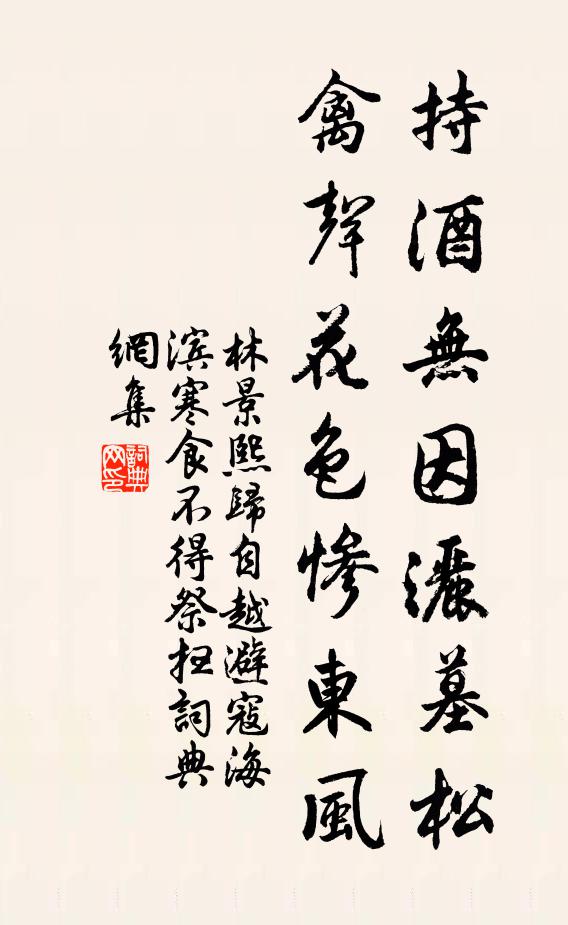 持酒無因灑墓松
禽聲花色慘東風
林景熙歸自越避寇海
滨寒食不得祭扫詞典
網集
詞典網印